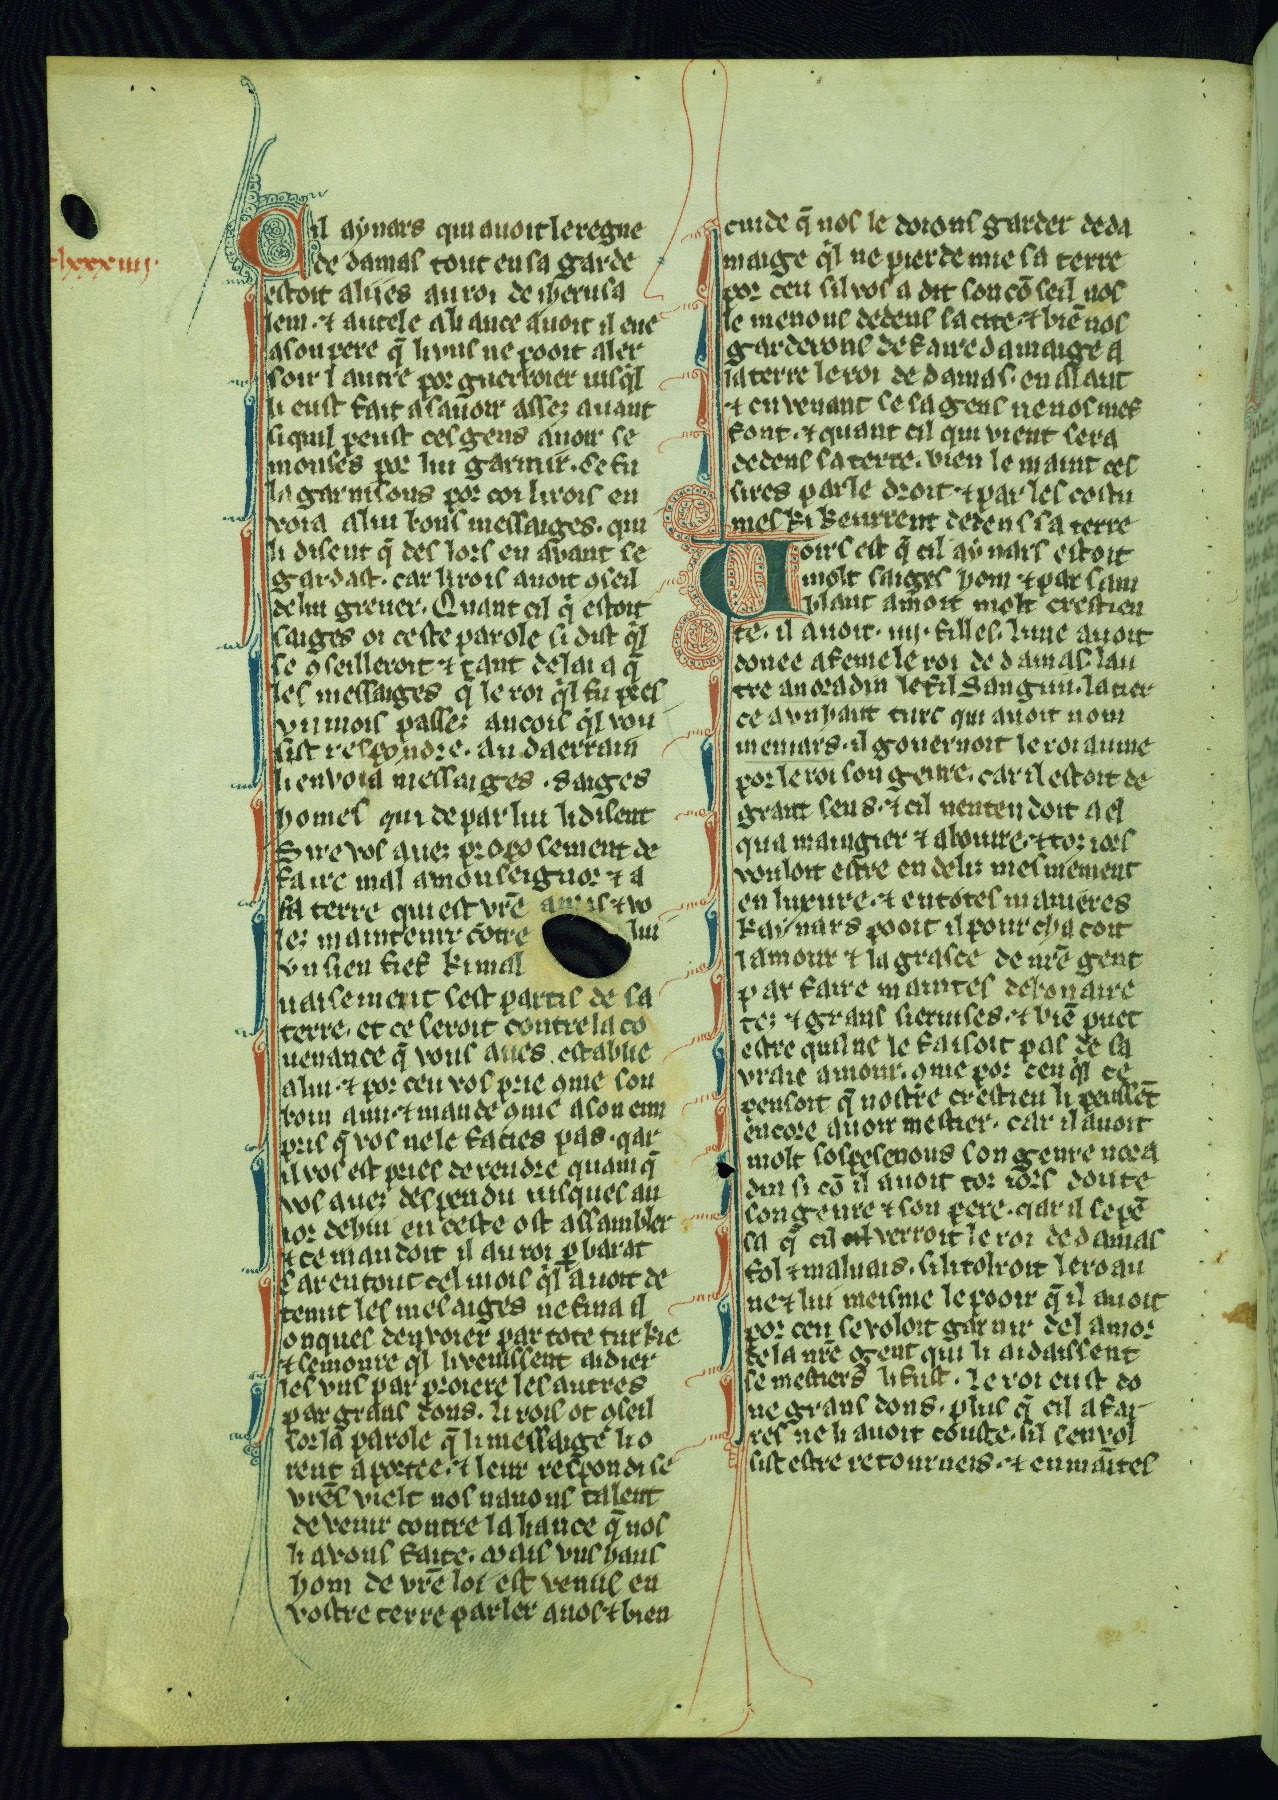 .lxxxiiij.
Cil aynars qui auoit le regne
de damas tout en sa garde
estoit alijes au roi de iherusa
lem. ⁊ autele aliance auoit il eue
a son pere q̄ li vns ne pooit aler
sor l autre por guerroier iusq̍l
li eust fait a sauoir assez auant
si quil peust ces gens auoir se
monses por lui garnir. Se fu
la garnisons por coi li rois en
voia a lui bons messaiges. qui
li disent q̄ des lors en auant se
gardast. car li rois auoit ꝯseil
de lui greuer. Quant cil q̍ estoit
saiges oi ceste parole si dist q̍l
se ꝯseilleroit ⁊ tant delaia q̄
les messaiges q̄ le roi q̍l fu pres
vn mois passez ancois q̍l vou
sist respondre. au daerrain
li enuoia messaiges . saiges
homes qui de par lui li disent
Sire vos auez proposement de
faire mal a monseignor ⁊ a
sa terre qui est vrē amis ⁊ vo
lez maintenir cōtre lui
vn sien fief ki mal
uaisement sest partis de sa
terre. et ce seroit contre la co
uenance q̄ vous aues establie
a lui. ⁊ por ceu vos prie ꝯme son
boin ami ⁊ mande ꝯme a son enn
pris q̄ vos ne le facies pas. qar
il vos est pries de rendre quamq̄
vos auez despendu iusques au
ior dehui en ceste ost assambler
⁊ ce mandoit il au roi ꝑ barat
Car en tout cel mois q̍l auoit de
tenut les mesaiges ne fina il
onques denvoier par tote turkie
⁊ semonre q̍l li venissent aidier
les vns par proiere les autres
par grans dons. Li rois ot ꝯseil
sor la parole q̄ li messaige li o
rent aportee. ⁊ leur respondi se
vrēs vielt nos nauons talent
de venir contre laliance q̄ nos
li auons faite. Mais vns haus
hom de vrē loi est venus en
vostre terre parler a nos ⁊ bien
cuide q̄ nos le doions garder de da
maige q̍l ne pierde mie sa terre
por ceu sil vos a dit son cōseil nos
le menons dedens sa cite. ⁊ biē nos
garderons de faire damaige a
la terre le roi de damas. en alant
⁊ en venant se sa gens ne nos mef
font. ⁊ quant cil qui vient sera
dedens sa terre. bien le maint ces
sires par le droit ⁊ par les costu
mes ki keurrent dedens sa terre
Voirs est q̄ cil aynars estoit
molt saiges hom ⁊ par sam
blant amoit molt crestien
te. il auoit .iiij. filles. lune auoit
donee a feme le roi de damas. lau
tre a noradin le fil Sanguin. la tier
ce a vn haut turc qui auoit nom
menars. il gouernoit le roiaume
por le roi son genre. car il estoit de
grant sens. ⁊ cil nentendoit a el
qua maingier ⁊ a boiure. ⁊ tor iors
vouloit estre en deliz meismement
en luxure. ⁊ en totes manieres
kaynars pooit il pourchacoit
lamour ⁊ la grasce de nrē gent
par faire maintes debonaire
tez ⁊ grans seruises. ⁊ biē puet
estre quil ne le faisoit pas de sa
vraie amour. ꝯme por ceu q̍l ce
pensoit q̄ nostre crestien li peussēt
encore auoir mestier. car il auoit
molt sospesenous son genre nora
din si cō il auoit tor iors doute
son genre ⁊ son pere. qar il se pē
sa q̄ cil verroit le roi de damas
fol ⁊ maluais. si li tolroit le roau
ne ⁊ lui meisme le pooir q̄ il auoit
por ceu se voloit garnir de lamor
de la nrē gent qui li aidaissent
se mestiers li fust. Le roi eust do
ne grans dons. plus q̄ cil afai
res ne li auoit couste. sil sen vol
sist estre retorneis. ⁊ en maītes